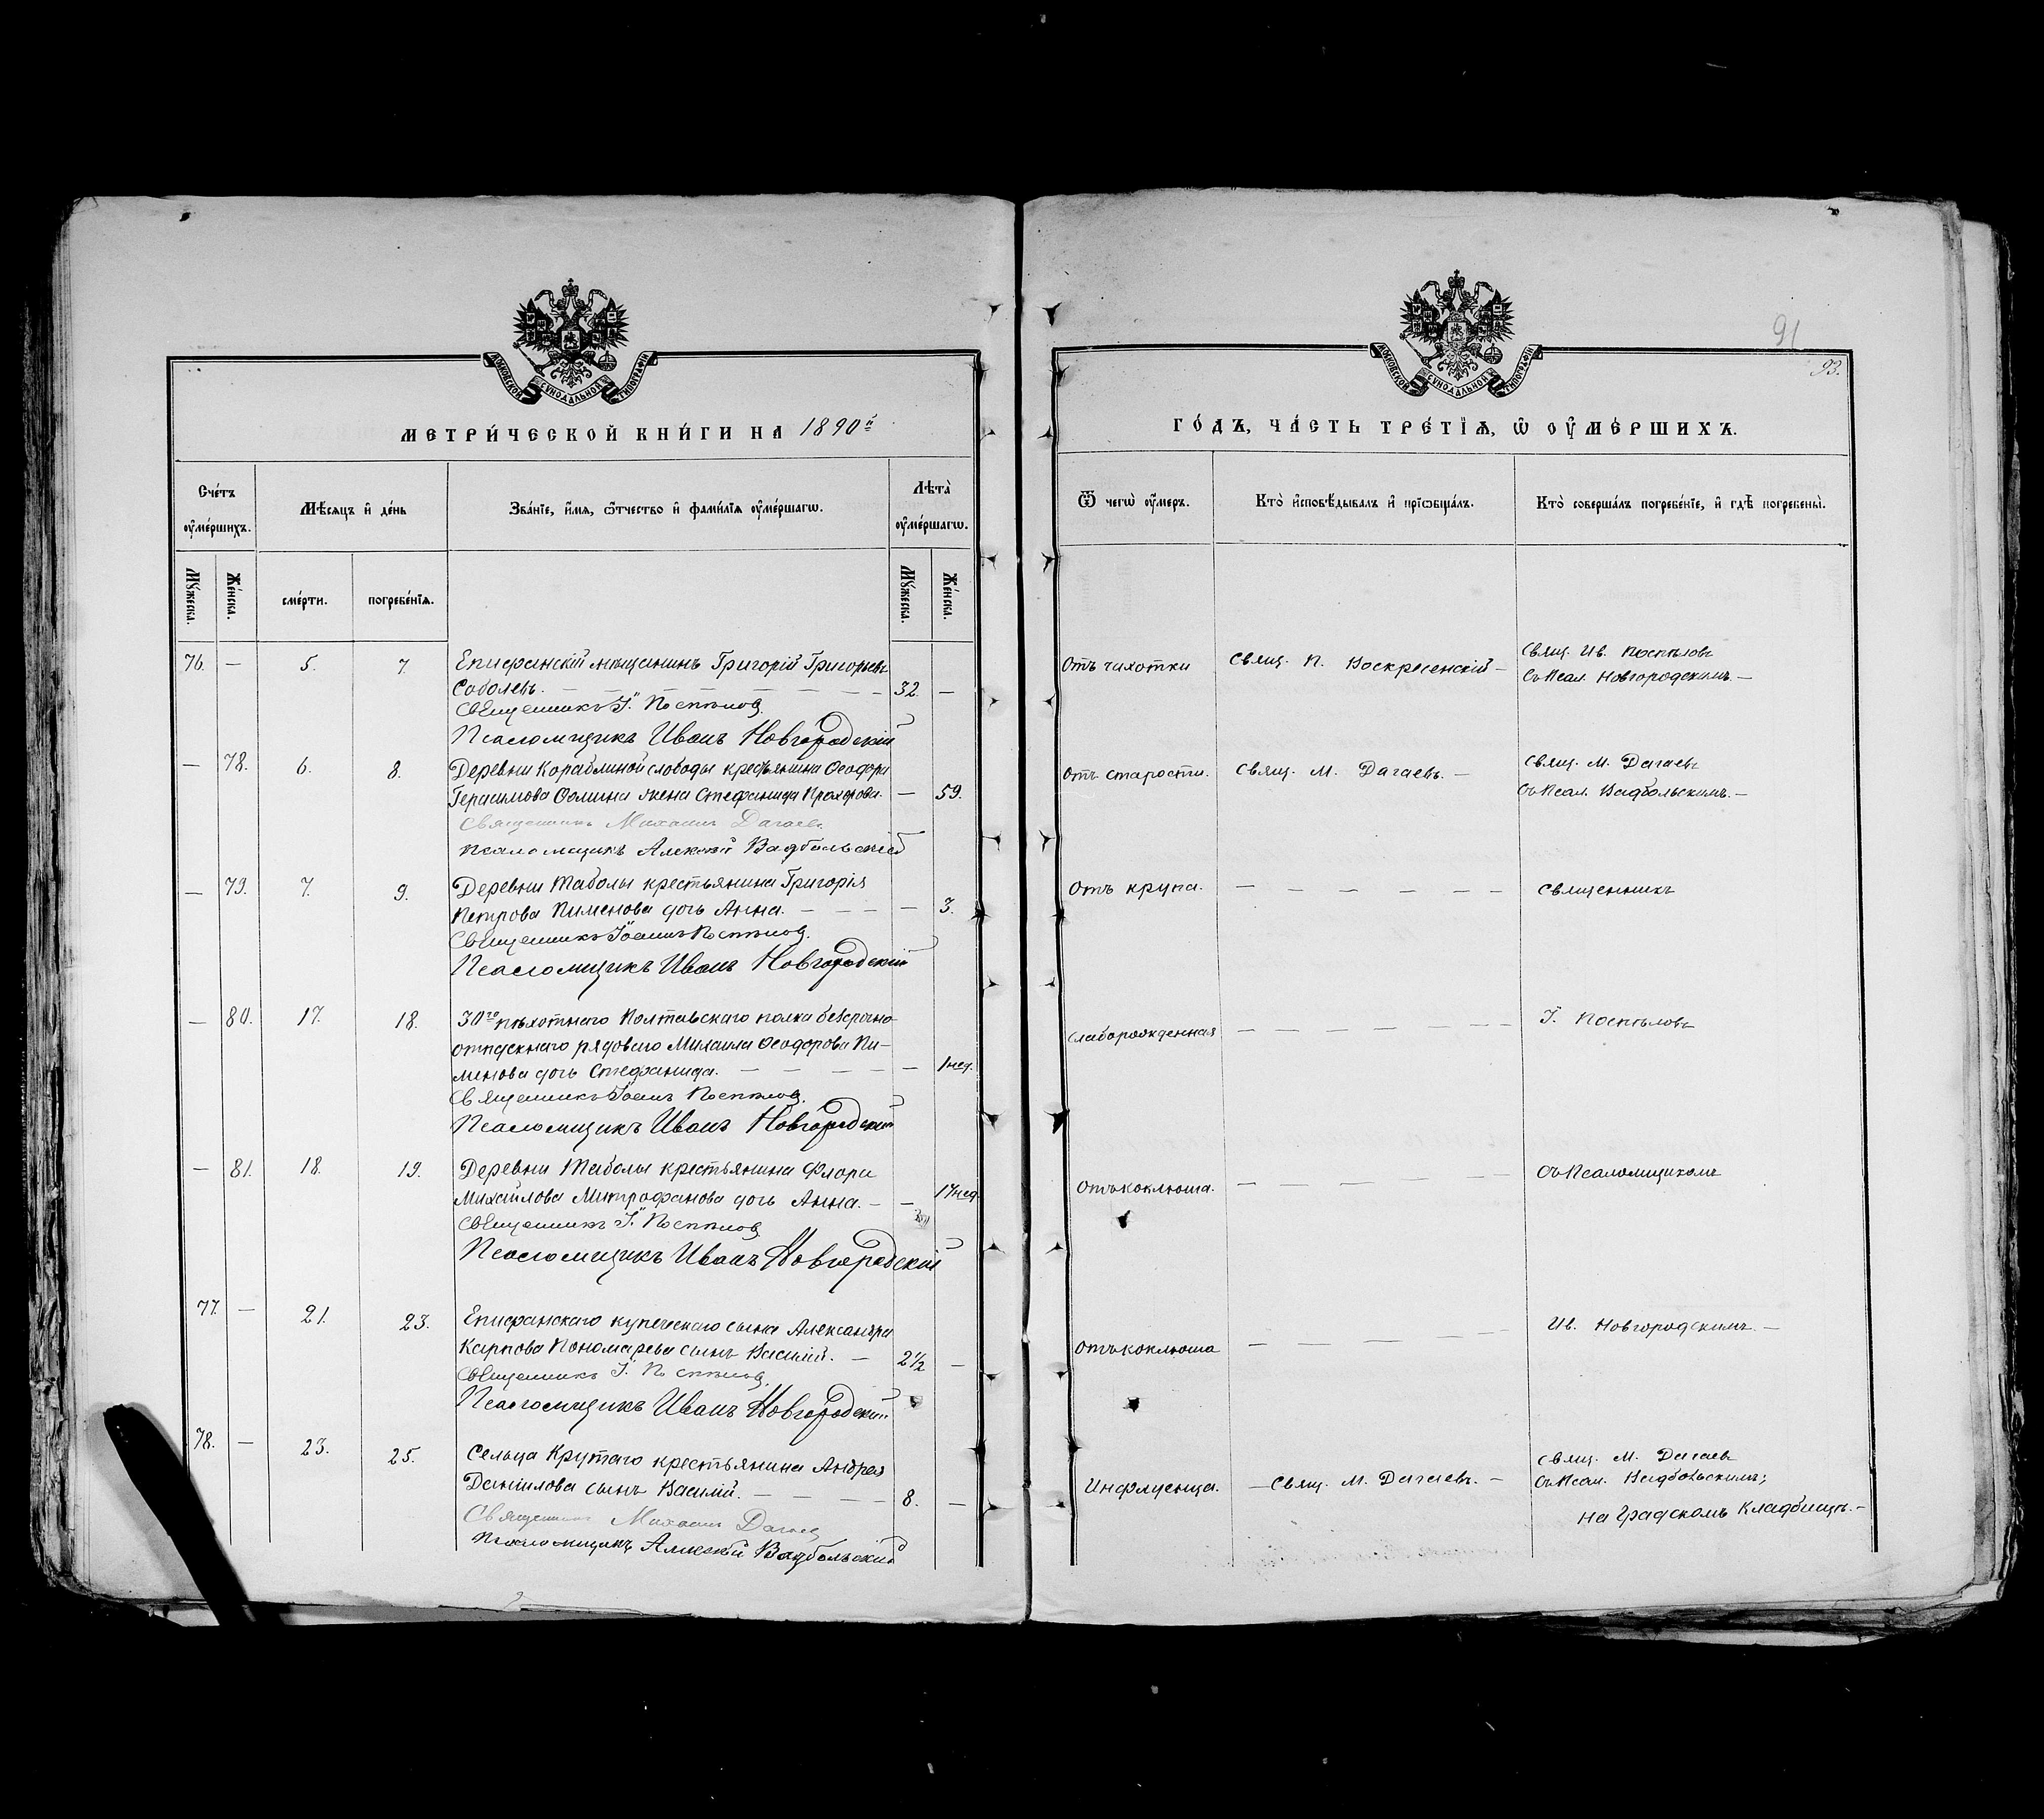 91
93.
МОСКОВСКОЙ СУНОДАЛЬНОЙ ТИПОГРАФІИ
МЕТРИ́ЧЕСКОЙ КНИ́ГИ НА 1890й
Сче́тъ ᲂу҆ме́ршихъ.
Мѣ́сѧцъ и҆ де́нь
Зва́нїе, и҆́мѧ, ѻ҆́тчество и҆ фами́лїѧ ᲂу҆ме́ршагѡ.
Лѣ́та ᲂу҆ме́ршагѡ.
Мꙋ́жеска.
Же́нска.
сме́рти.
погребе́нїѧ.
Мꙋ́жеска.
Же́нска.
76. — 5. 7. Епифанскій мѣщанинъ Григорій Григорьевъ
Соболевъ. — 32. —
Священникъ І. Поспѣловъ.
Псаломщикъ Иванъ Новгородскій
— 78. 6. 8. Деревни Кораблиной слободы крестьянина Ѳеодора
Герасимова Ѳомина жена Стефанида Прохорова. — 59.
Священникъ Михаилъ Дагаевъ
Псаломщикъ Алексѣй Вадбольскій
— 79. 7. 9. Деревни Таболы крестьянина Григорія
Петрова Пименова дочь Анна. — 3.
Священникъ Іоаннъ Поспѣловъ.
Псаломщикъ Иванъ Новгородскій
— 80. 17. 18. 30го пѣхотнаго Полтавскаго полка безсрочно-
отпускнаго рядоваго Михаила Ѳеодорова Пи-
менова дочь Стефанида. — 1 нед.
Священникъ Іоаннъ Поспѣловъ.
Псаломщикъ Иванъ Новгородскій
— 81. 18. 19. Деревни Таболы крестьянина Флора
Михайлова Митрофанова дочь Анна. — 17 нед.
Священникъ І. Поспѣловъ
Псаломщикъ Иванъ Новгородскій
77. — 21. 23. Епифанскаго купеческаго сына Александра
Карпова Пономарева сынъ Василій. — 2½ —
Священникъ І. Поспѣловъ.
Псаломщикъ Иванъ Новгородскій
78. — 23. 25. Сельца Крутаго крестьянина Андрея
Даніилова сынъ Василій. — 8. —
Священникъ Михаилъ Дагаевъ
Псаломщикъ Алексѣй Вадбольскій
МОСКОВСКОЙ СУНОДАЛЬНОЙ ТИПОГРАФІИ
ГО́ДЪ, ЧА́СТЬ ТРЕ́ТЇѦ, Ѡ҆ ОУ҆МЕ́РШИХЪ.
Ѿ чегѡ̀ ᲂу҆́меръ.
Кто̀ и҆сповѣ́дывалъ и҆ прїѡбща́лъ.
Кто̀ соверша́лъ погребе́нїе, и҆ гдѣ̀ погребены̀.
Отъ чахотки Свящ. П. Воскресенскій —
Свящ. Ив. Поспѣловъ
Съ Псал. Новгородскимъ. —
Отъ старости. Свящ. М. Дагаевъ. —
Свящ. М. Дагаевъ
Съ Псал. Вадбольскимъ. —
Отъ крупа. — — — — — — Священникъ
Слаборожденная — — — — — — І. Поспѣловъ
Отъ коклюша. — — — — — — Съ Псаломщикомъ
Отъ коклюша — — — — — — Ив. Новгородскимъ. —
Инфлуенца. — Свящ. М. Дагаевъ. —
Свящ. М. Дагаевъ
Съ Псал. Вадбольскимъ;
на Градскомъ Кладбищѣ. —